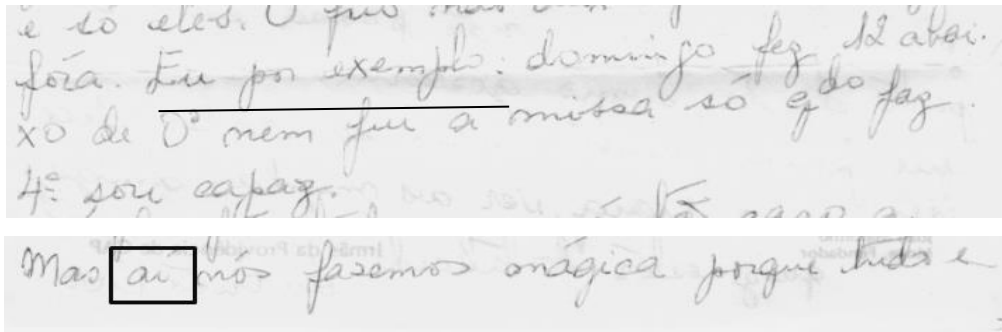 e só eles. O frio mas
fóra. Eu por exemplo: domingo fez 12 abai-
xo de 0° nem fui a missa só qdo faz
4º sou capaz.
Mas aí nós fazemos mágica porque tudo e